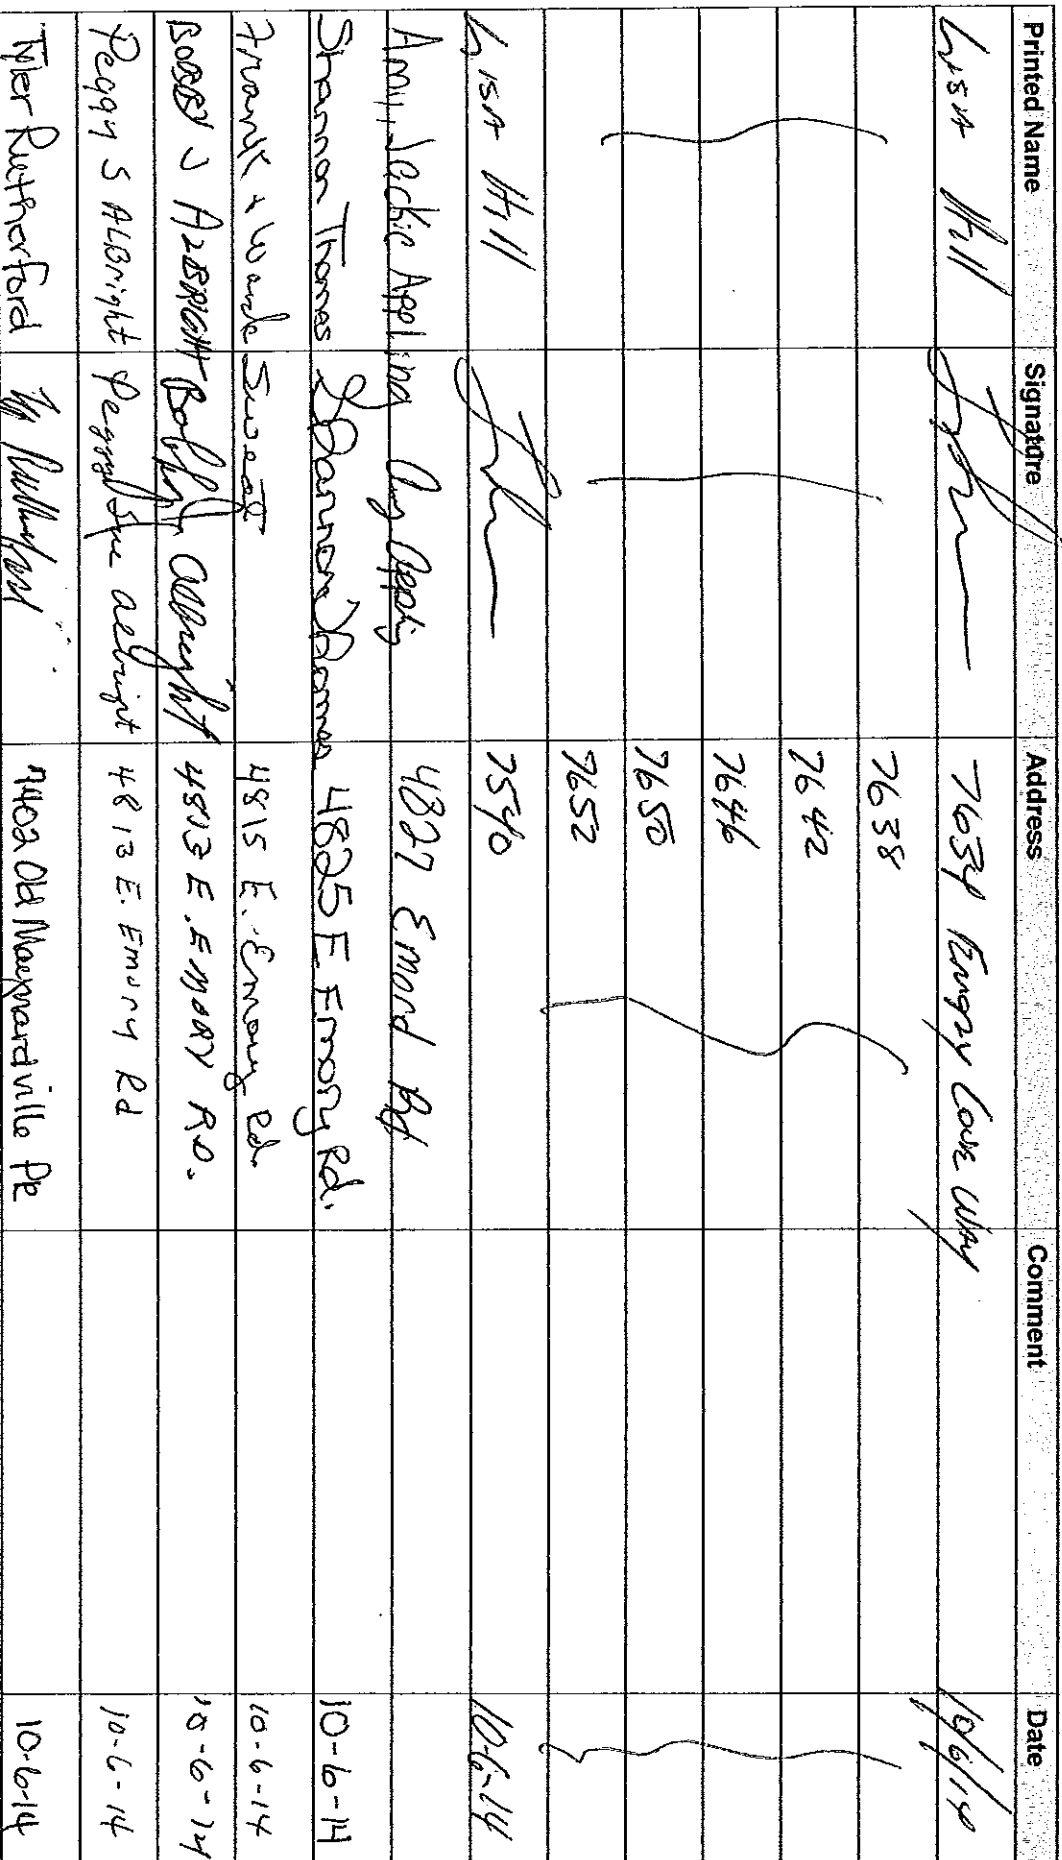 Printed Name Signature Address Comment Date
Lisa Hill 7634 Cove Way 10/6/14
7638
7642
7646
7650
7652
Lisa Hill 7540 10-6-14
Amy, Jackie Appling Amy Appling 4827 Emord Rd
Shannon Thomas Shannon Thomas 4825 E Emory Rd. 10-6-14
Frank & Wanda Sweat 4815 E. Emory Rd. 10-6-14
BOBBY J ALBRIGHT Bobby J. Albright 4813 E. EMORY RD. 10-6-14
Peggy S ALBright Peggy Sue Albright 4813 E. Emory Rd 10-6-14
Tyler Rutherford Ty Rutherford 7402 Old Maynardville Pk 10-6-14